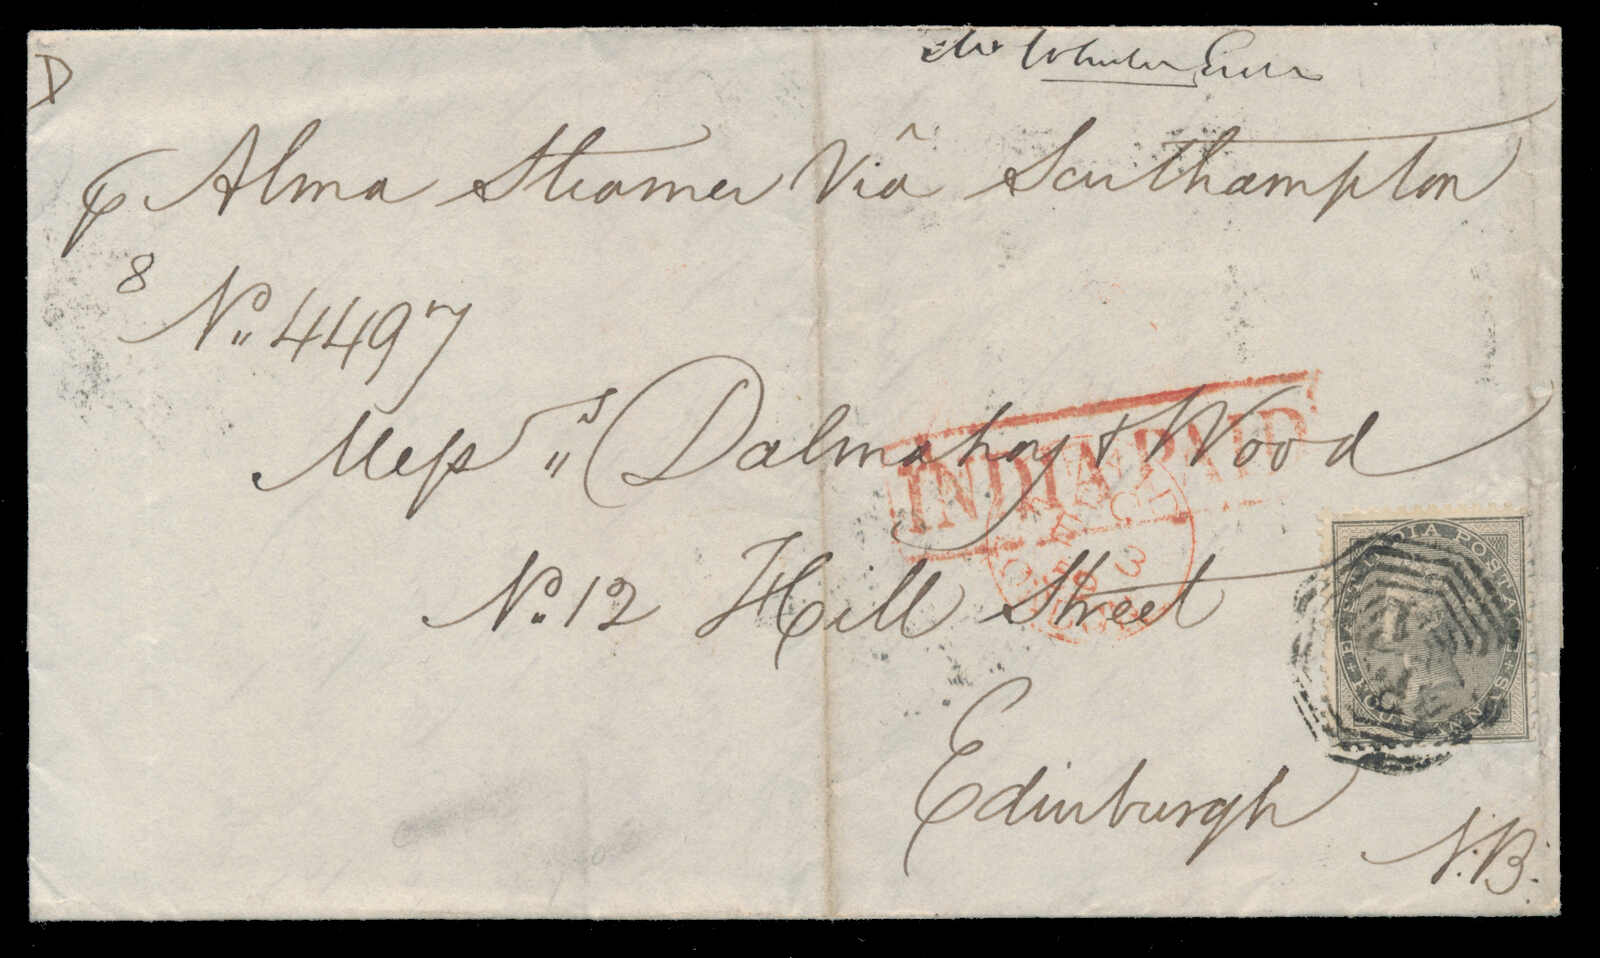 D
p Alma Steamer Viâ Southampton
8
No. 4497
Messrs Dalmahoy & Wood
INDIA PAID
No. 12 Hill Street
EAST INDIA POSTAGE
FOUR ANNAS
Edinburgh
N.B.